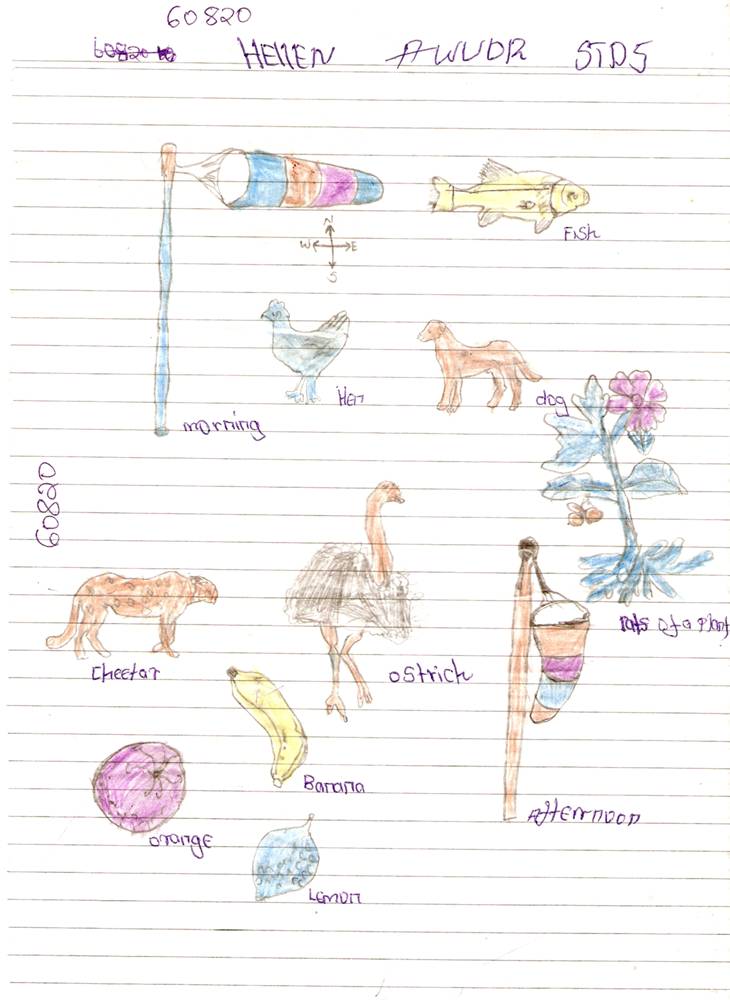 60820
60820 10
HEllEN AWUOR STD5
Fish
N
W E
S
Hen
dog
morning
60820
rots of a plant
cheetar
ostrich
Banana
afternoon
orange
Lemon